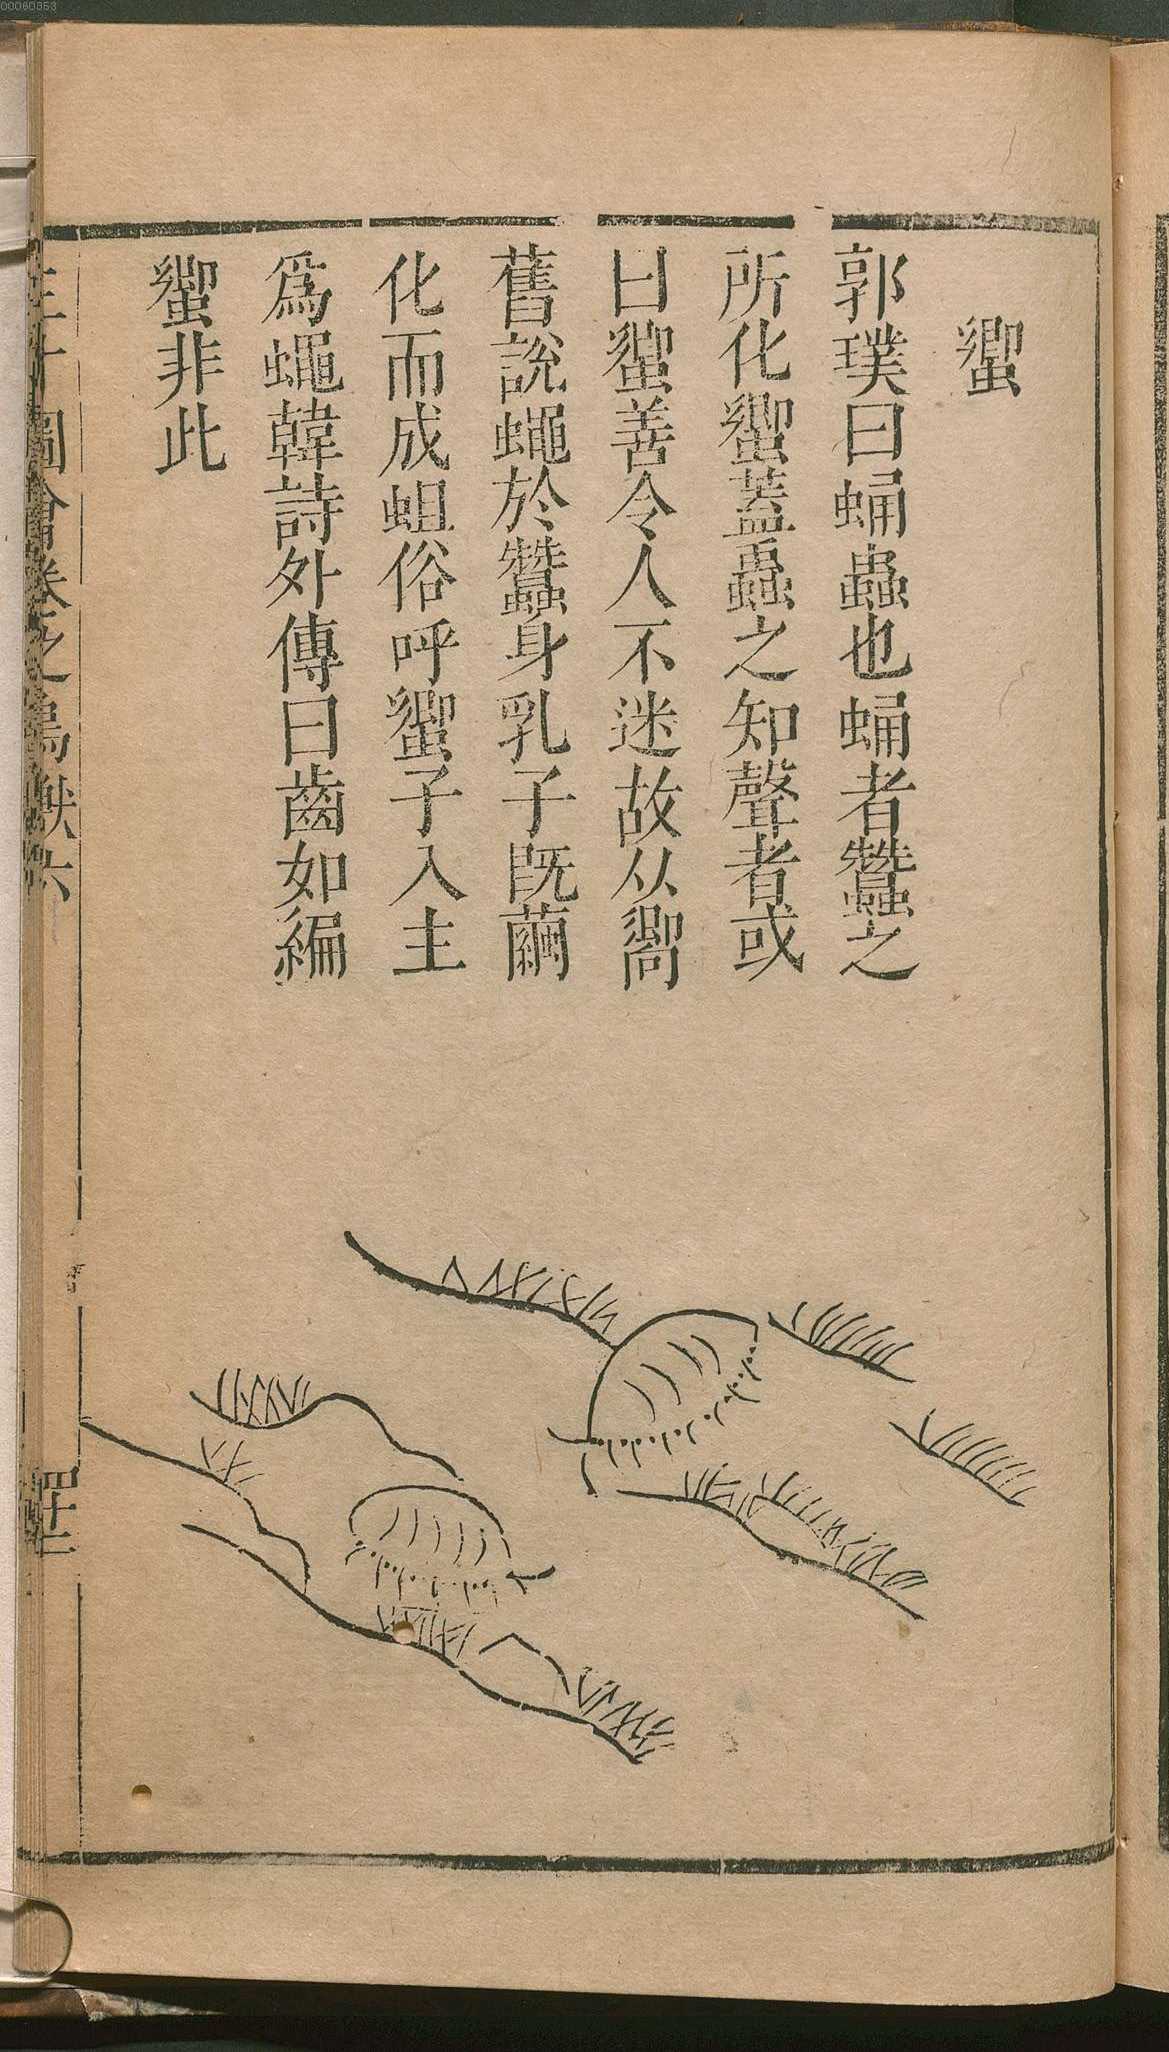 00060353
蠁
郭璞曰蛹蟲也蛹者蠶之
所化蠁蓋蟲之知聲者或
曰蠁善令人不迷故从嚮
舊說蠅於蠶身乳子既繭
化而成蛆俗呼蠁子入主
爲蠅韓詩外傳曰齒如編
蠁非此
三才圖會卷之鳥獸六